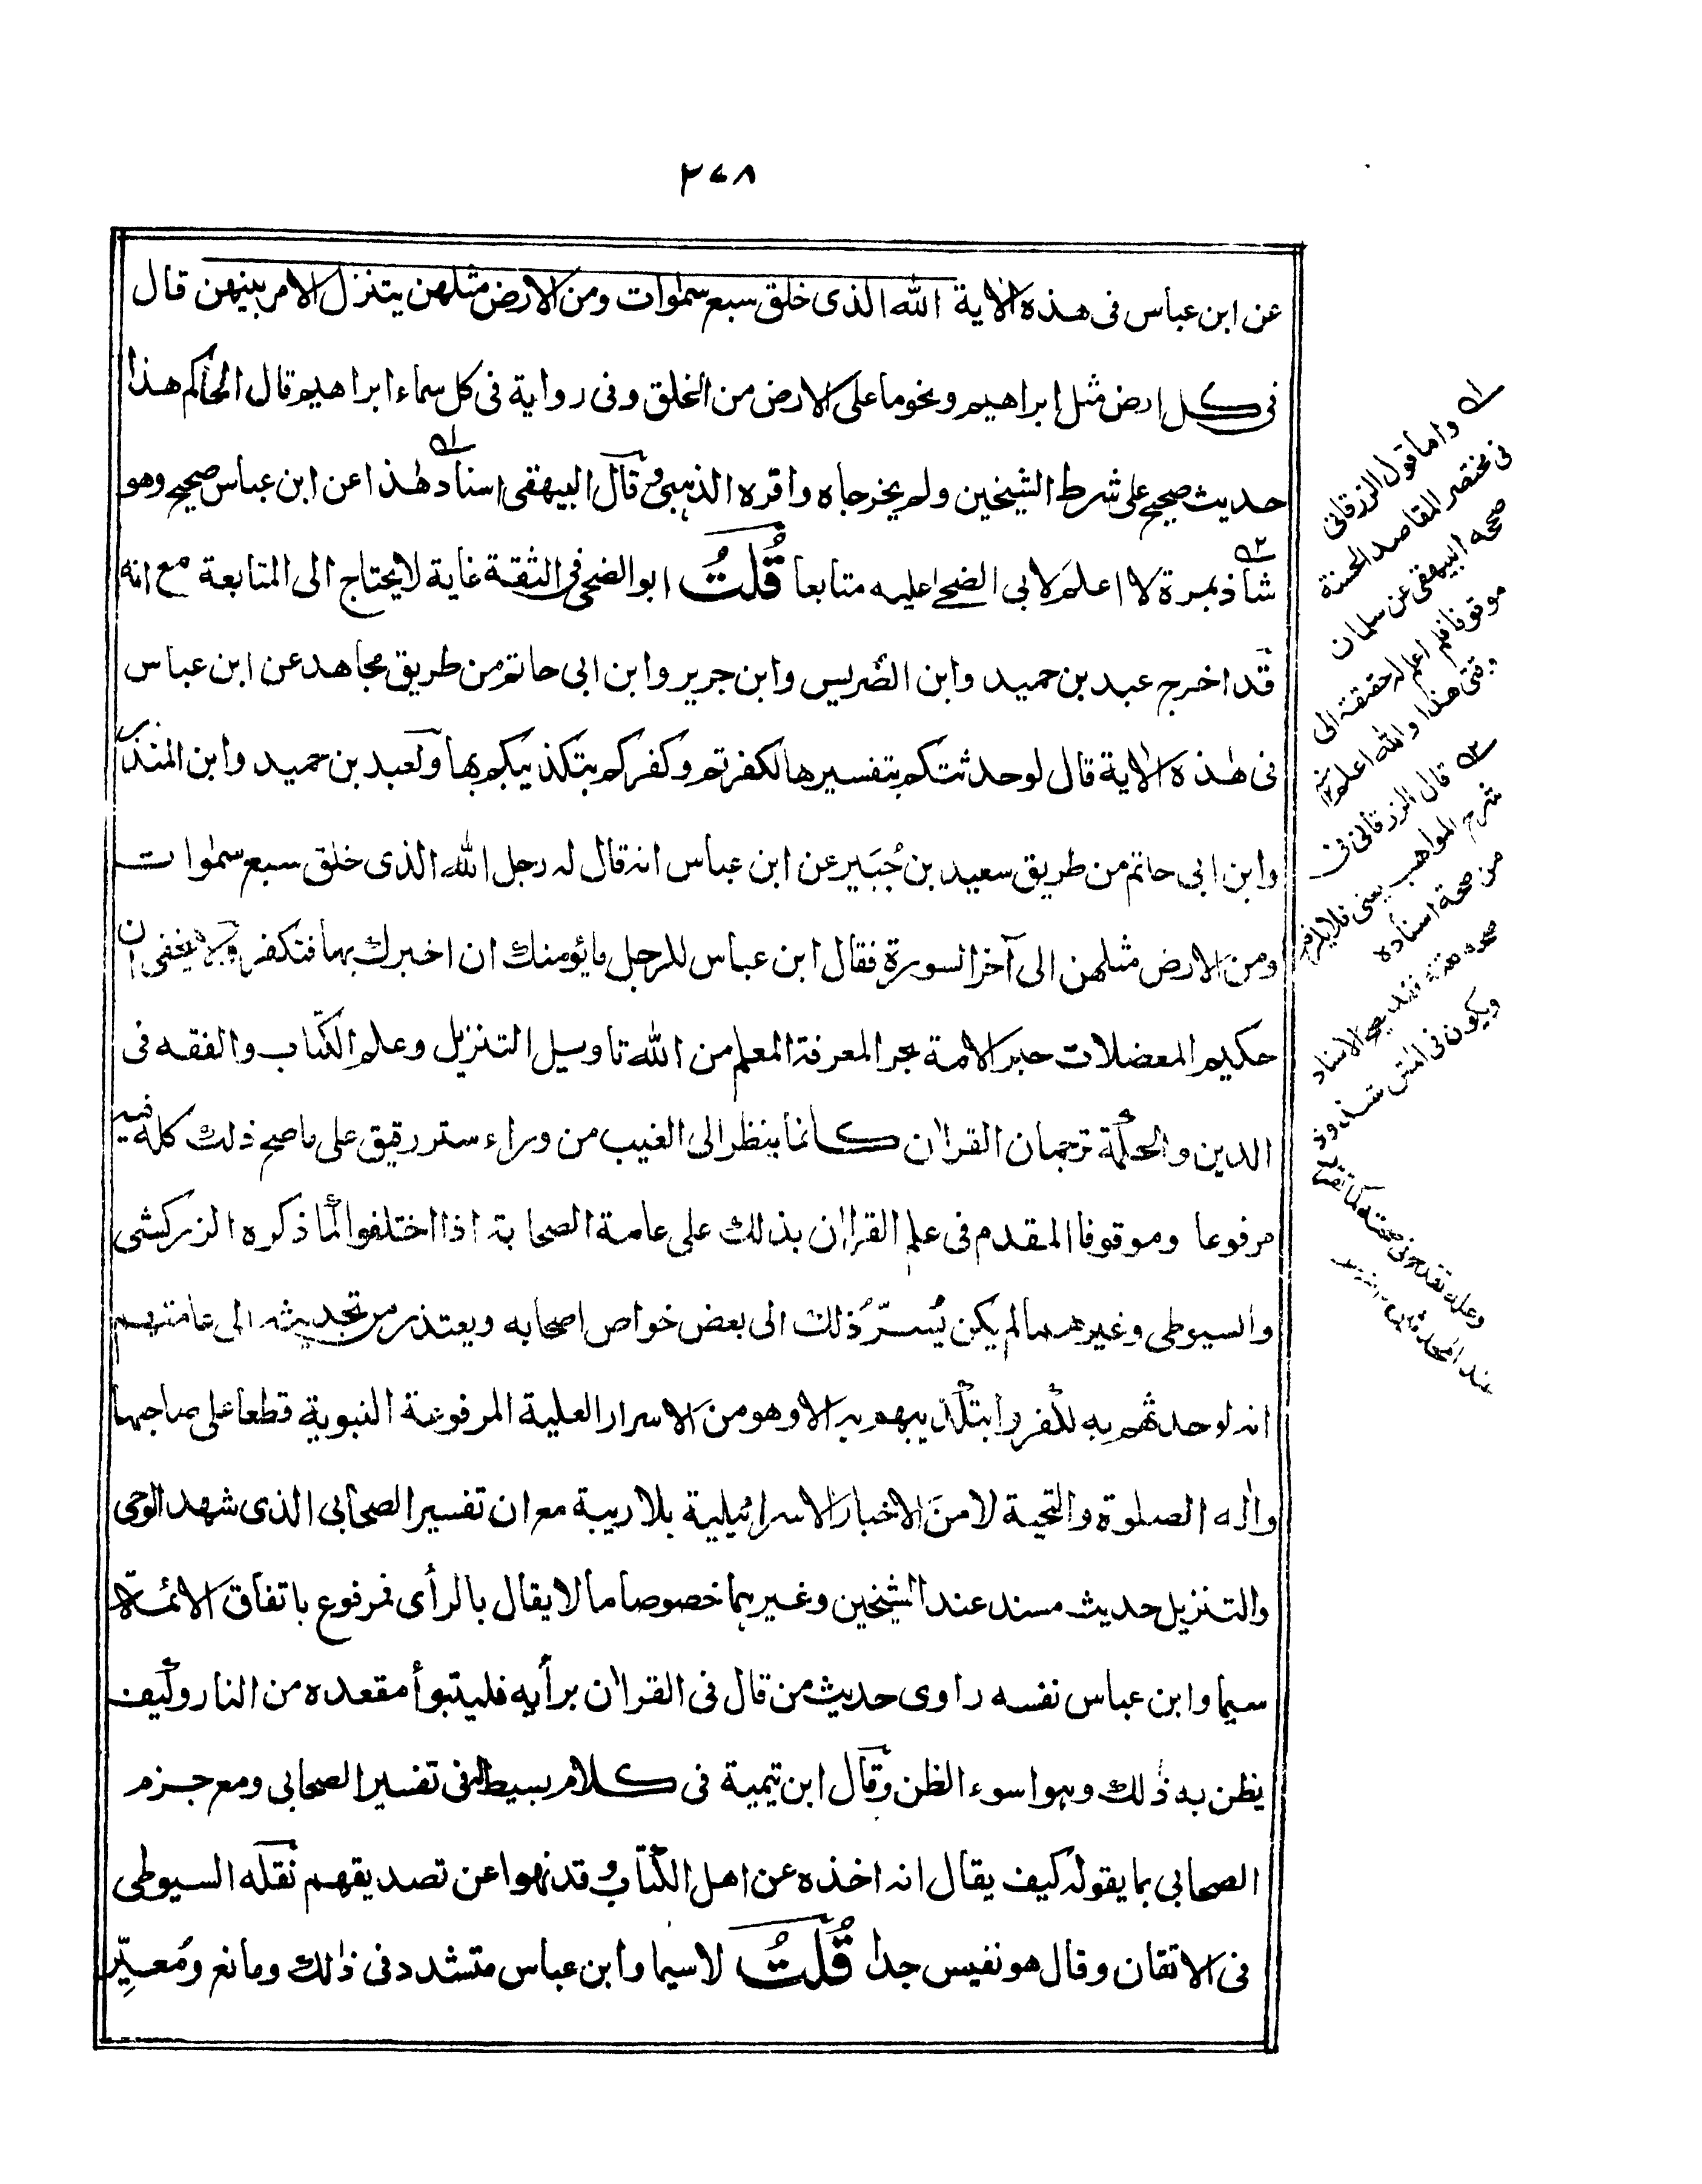 ٢٧٨
عن ابن عباس فى هذه الاية الله الذى خلق سبع سمٰوات ومن الارض مثلهن يتنزل الامر بينهن قال
فى كل ارض مثل ابراهيم ونحو ما على الارض من الخلق وفى رواية فى كل سماء ابراهيم قال الحاكم هذا
حديث صحيح على شرط الشيخين ولم يخرجاه واقره الذهبى وقال البيهقى اسناد هٰذا عن ابن عباس صحيح وهو
شاذ بمرة لا اعلم لابى الضحٰى عليه متابعا قُلتُ ابو الضحى فى الثقة غاية لا يحتاج الى المتابعة مع انه
قد اخرج عبد بن حميد وابن الضريس وابن جرير وابن ابى حاتم من طريق مجاهد عن ابن عباس
فى هٰذه الاية قال لو حدثتكم بتفسيرها لكفرتم وكفركم بتكذيبكم بها ولعبد بن حميد وابن المنذر
وابن ابى حاتم من طريق سعيد بن جُبَير عن ابن عباس انه قال له رجل الله الذى خلق سبع سمٰوات
ومن الارض مثلهن الى آخر السورة فقال ابن عباس للرجل ما يؤمنك ان اخبرك بها فتكفر ولا يخفى ان
حكيم المعضلات حبر الامة بحر المعرفة المعلم من الله تاويل التنزيل وعلم الكتاب والفقه فى
الدين والحكمة ترجمان القراٰن كانما ينظر الى الغيب من وراء ستر رقيق على ما صح ذلك كله فيه
مرفوعا وموقوفا المقدم فى علم القراٰن بذلك على عامة الصحابة اذا اختلفوا لما ذكره الزركشى
والسيوطى وغيرهما لم يكن يُسرّ ذلك الى بعض خواص اصحابه ويعتذر من تحديثه الى عامتهم
انه لو حدثهم به لكفروا بتكذيبهم به الا وهو من الاسرار العلية المرفوعة النبوية قطعا على صاحبها
واٰله الصلوة والتحية لا من الاخبار الاسرائيلية بلا ريبة مع ان تفسير الصحابى الذى شهد الوحى
والتنزيل حديث مسند عند الشيخين وغيرهما خصوصا ما لا يقال بالرأى فمرفوع باتفاق الائمة لا
سيما وابن عباس نفسه راوى حديث من قال فى القراٰن برأيه فليتبوأ مقعده من النار وكيف
يظن به ذٰلك وهو اسوء الظن وقال ابن تيمية فى كلام بسيط له فى تفسير الصحابى ومع جزم
الصحابى بما يقوله كيف يقال انه اخذه عن اهل الكتاب وقد نهوا عن تصديقهم نقله السيوطى
فى الاتقان وقال هو نفيس جدا قُلتُ لا سيما وابن عباس متشدد فى ذٰلك ومانع ومُعيِّر
ـه١ واما قول الزرقانى
فى مختصر المقاصد الحسنة
صححه البيهقى عن سلمان
موقوفا فلم اعلم له حقيقة الى
وقتى هذا والله اعلم ١٢ منه
ـه٢ قال الزرقانى فى
شرح المواهب يعنى فلا يلزم
من صحة اسناده
صحة متنه فقد يصح الاسناد
ويكون فى المتن شذوذ
وعلة تقدح فى صحته كما تقرر
عند المحدثين